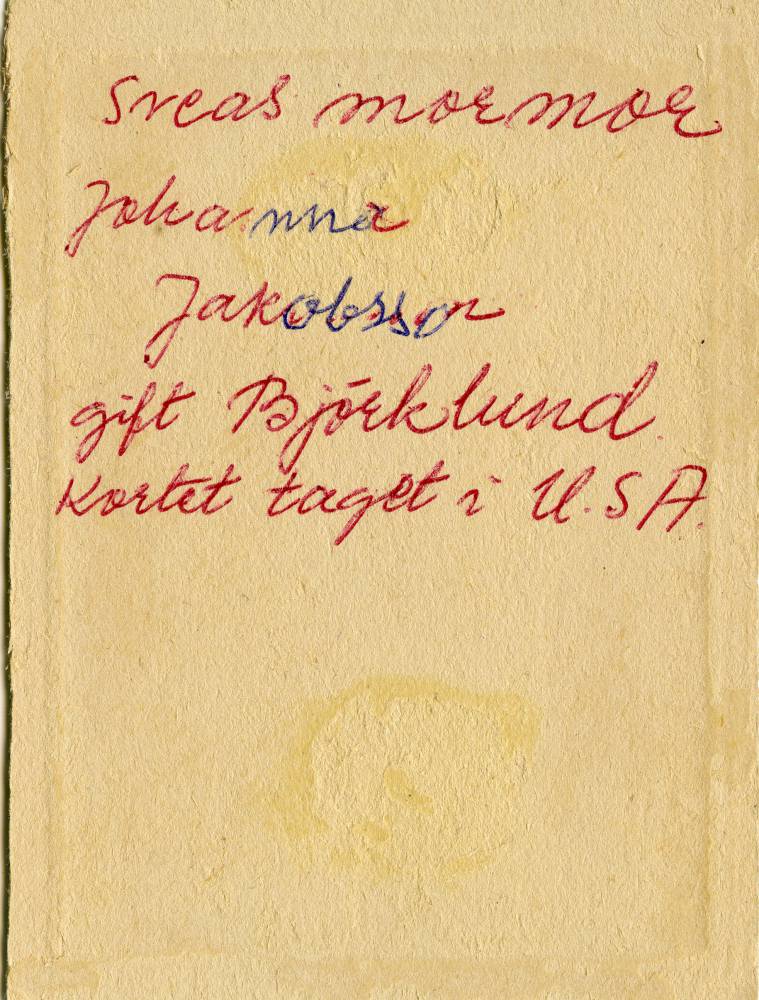 Sveas mormor
Johanna
Jakobsson
gift Björklund.
Kortet taget i U.S.A.